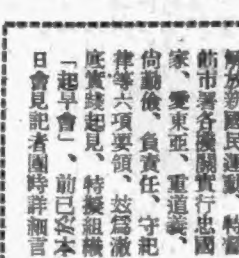 解放新國民運動、特飭
節市署各機關實行忠國
家、愛東亞、重道義、
尙勤儉、負責任、守紀
律等六項要領、玆爲澈
底實踐起見、特擬組織
「起早會」、前已於本
日會見記者團時詳細言